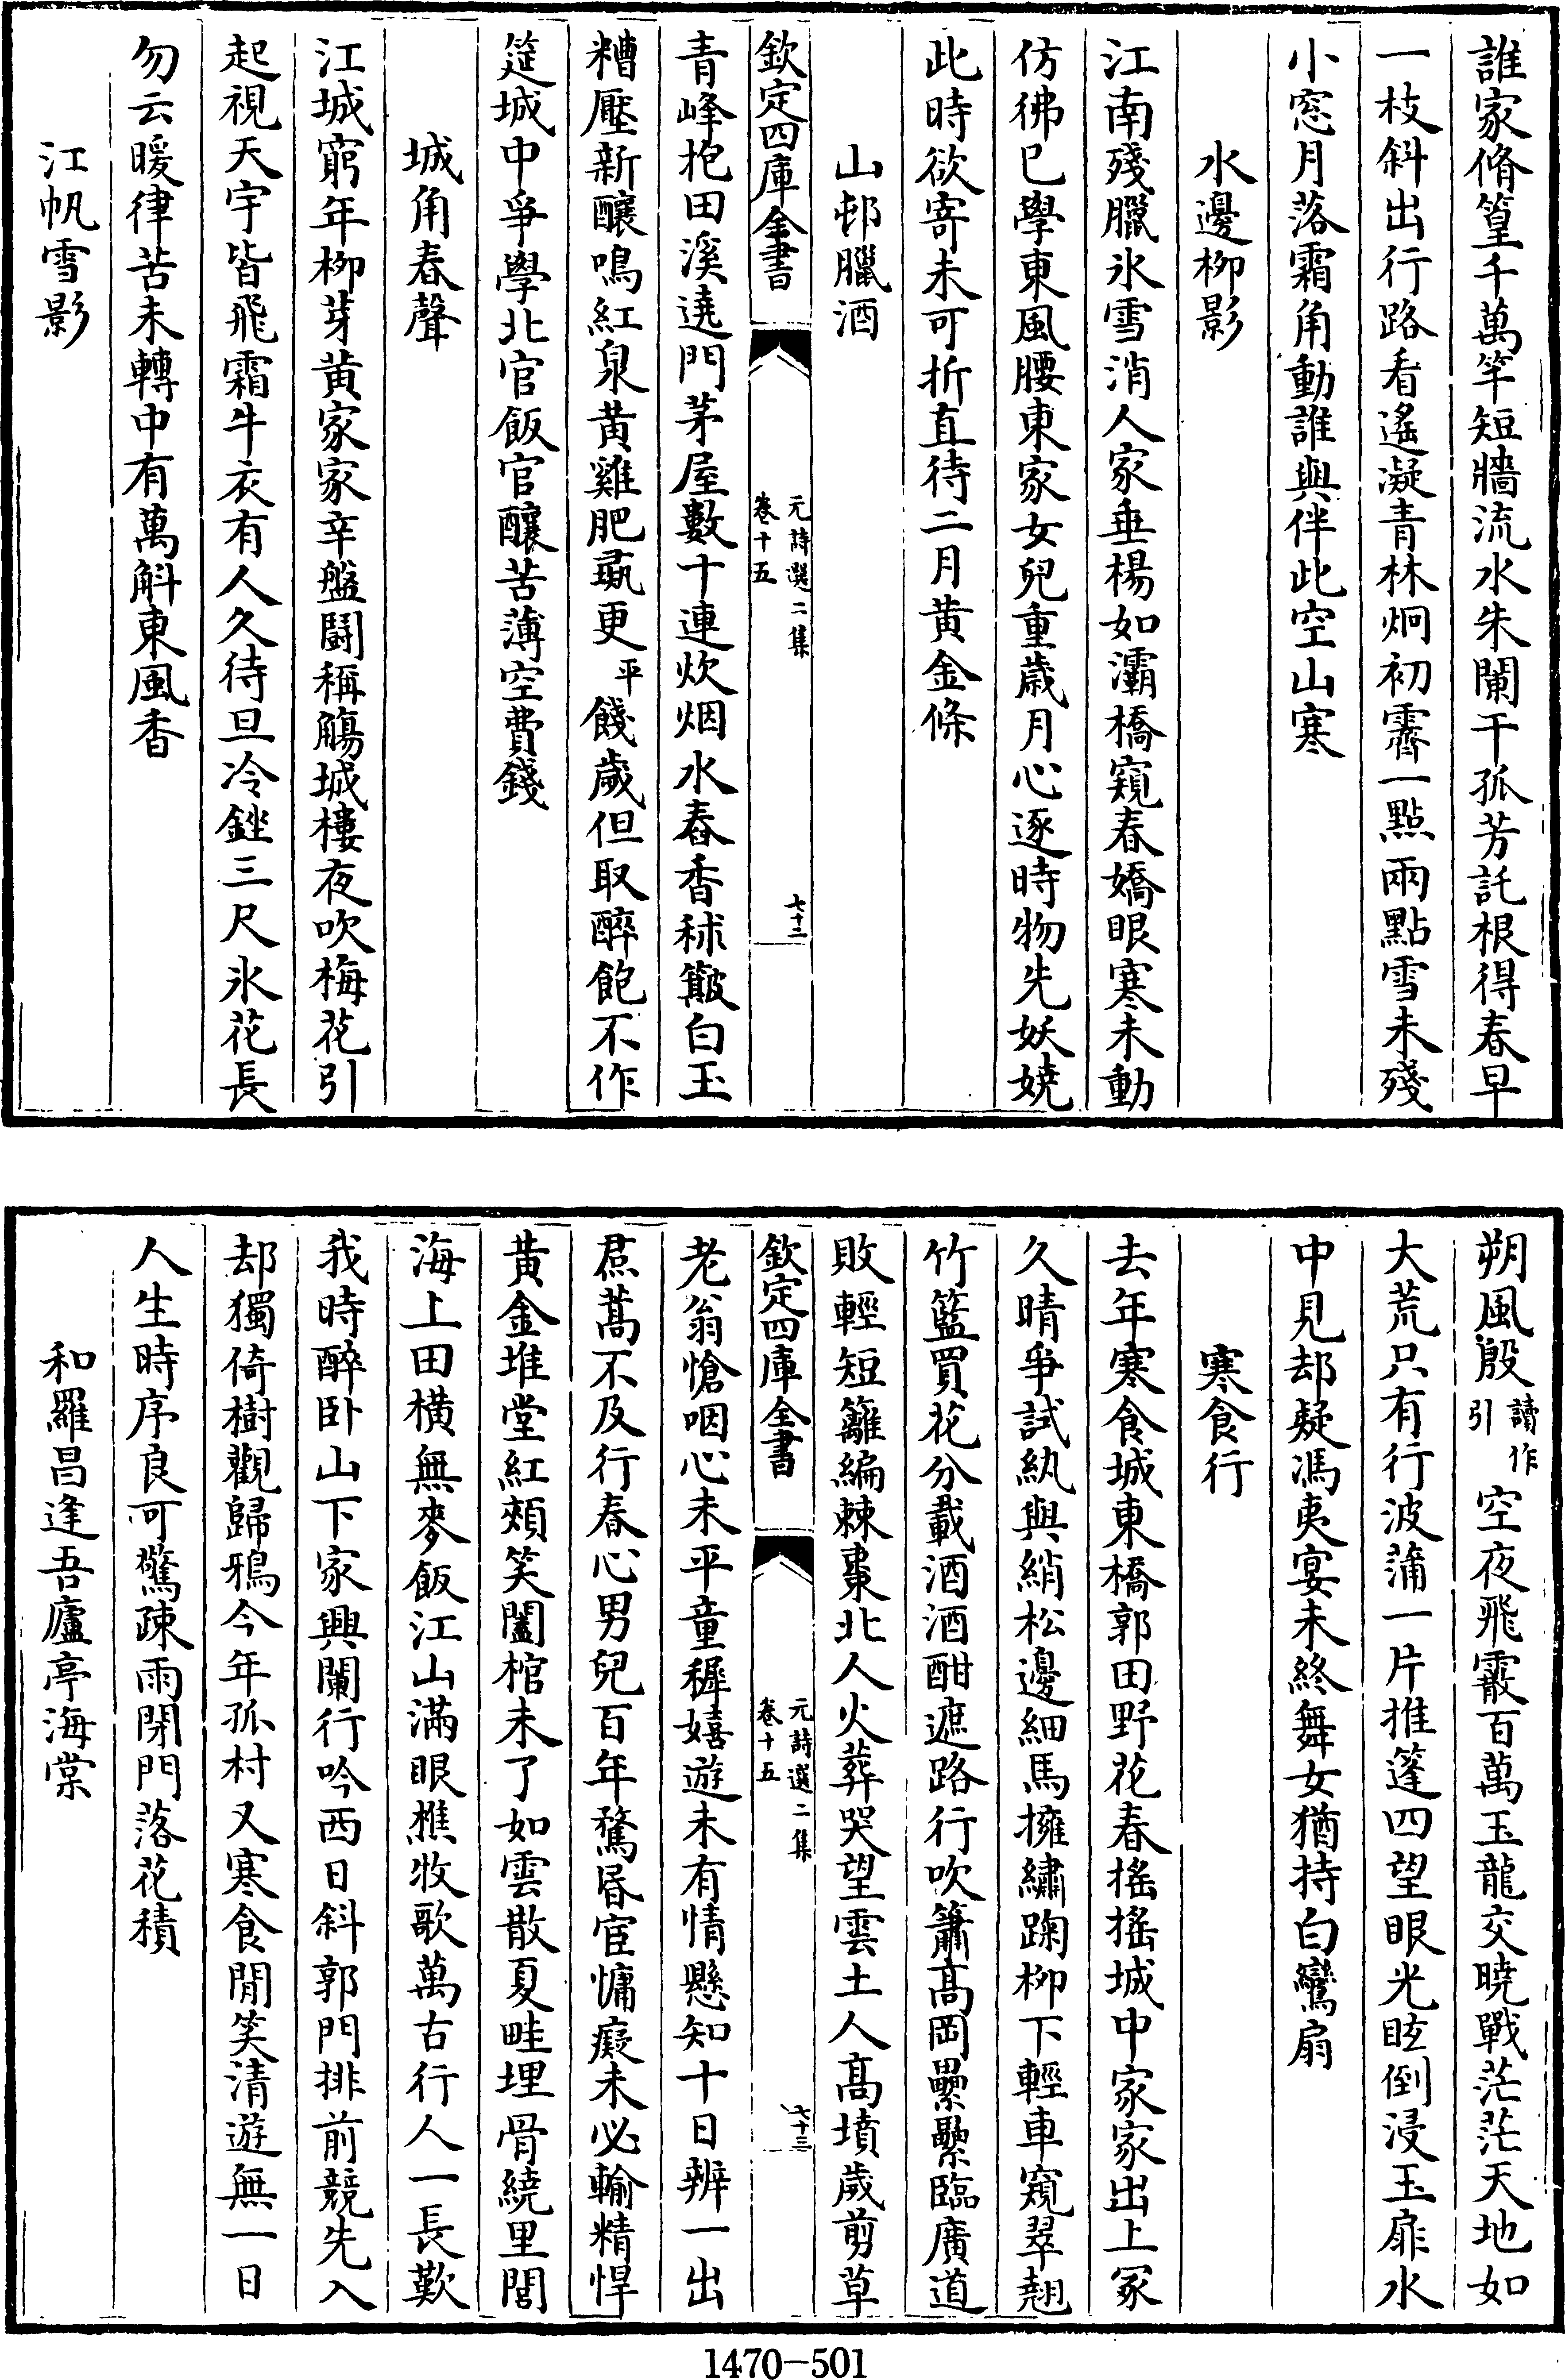 誰家脩篁千萬竿短牆流水朱闌干孤芳託根得春早
一枝斜出行路看遙凝青林炯初霽一點兩點雪未殘
小窓月落霜角動誰與伴此空山寒
水邊柳影
江南殘臘氷雪消人家垂楊如灞橋窺春嬌眼寒未動
仿彿已學東風腰東家女兒重歲月心逐時物先妖嬈
此時欲寄未可折直待二月黄金條
山邨臘酒
欽定四庫全書
元詩選二集
卷十五
七十二
青峰抱田溪遶門茅屋數十連炊烟水舂香秫簸白玉
糟壓新釀鳴紅泉黄雞肥𤓰更平餞歲但取醉飽不作
筵城中爭學北官飯官釀苦薄空費錢
城角春聲
江城窮年柳芽黄家家辛盤鬪稱觴城樓夜吹梅花引
起視天宇皆飛霜牛衣有人久待旦冷銼三尺氷花長
勿云暖律苦未轉中有萬斛東風香
江帆雪影
朔風殷讀作引空夜飛霰百萬玉龍交曉戰茫茫天地如
大荒只有行波蒲一片推篷四望眼光眩倒浸玉扉水
中見却疑馮夷宴未終舞女猶持白鸞扇
寒食行
去年寒食城東橋郭田野花春搖搖城中家家出上冢
久晴爭試紈與綃松邊細馬擁繡踘柳下輕車窺翠翹
竹籃買花分載酒酒酣遮路行吹簫髙岡纍纍臨廣道
敗輕短籬編棘棗北人火葬哭望雲土人髙墳歲剪草
欽定四庫全書
元詩選二集
卷十五
七十三
老翁愴咽心未平童穉嬉遊未有情懸知十日辨一出
焄蒿不及行春心男兒百年騖昏宦慵癡未必輸精悍
黄金堆堂紅頰笑闔棺未了如雲散夏畦埋骨繞里閭
海上田横無麥飯江山滿眼樵牧歌萬古行人一長歎
我時醉卧山下家興闌行吟西日斜郭門排前競先入
却獨倚樹觀歸鴉今年孤村又寒食閒笑清遊無一日
人生時序良可驚疎雨閉門落花積
和羅昌逢吾廬亭海棠
1470-501